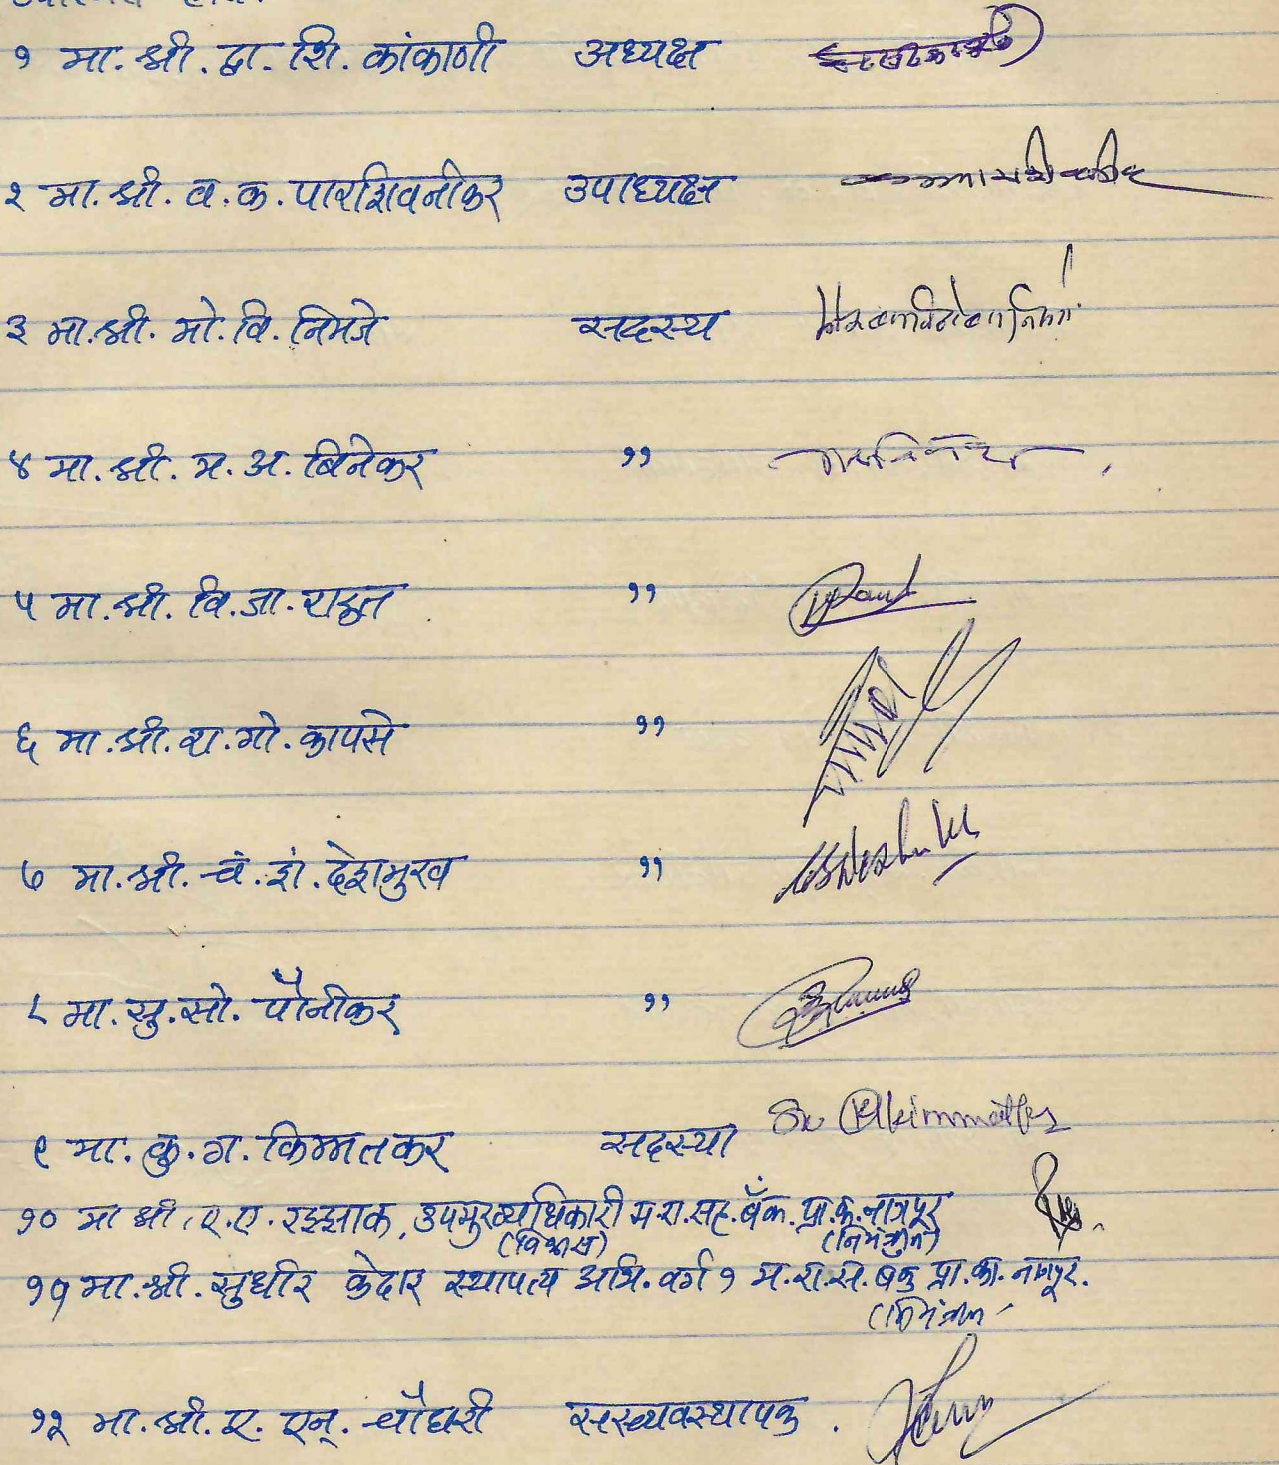 १ मा. श्री. द्वा. शि. कांकाणी अध्यक्ष
२ मा. श्री. व. क. पारशिवनीकर उपाध्यक्ष
३ मा. श्री. मो. वि. निमजे सदस्य
४ मा. श्री. म. अ. बिनेकर ,,
५ मा. श्री. वि. जा. राऊत ,,
६ मा. श्री. रा. गो. कापसे ,,
७ मा. श्री. चं. शं. देशमुख ,,
८ मा. सु. सो. पौनीकर ,,
९ मा. कु. ग. किम्मतकर सदस्या
१० मा श्री. ए. ए. रझ्झाक, उपमुख्याधिकारी म. रा. सह. बँक. प्रा. क. नागपूर
(विकास) (निमंत्रीत)
११ मा. श्री. सुधीर केदार स्थापत्य अभि. वर्ग १ म. रा. स. बँक प्रा. का. नागपूर.
१२ मा. श्री. ए. एन्. चौधरी सरव्यवस्थापक.